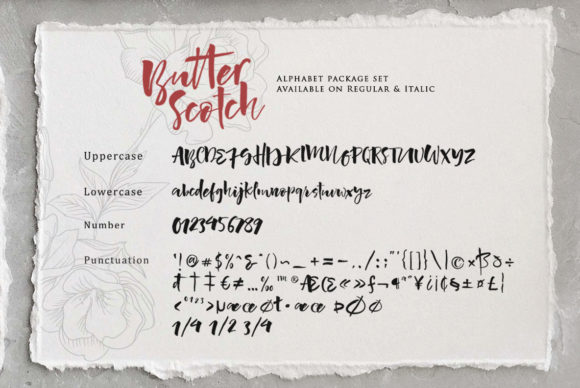 Butter
Scotch
Alphabet package set
Available on Regular & Italic
Uppercase ABCDEFGHIJKLMNOPQRSTUVWXYZ
Lowercase abcdefghijklmnopqrstuvwxyz
Number 0123456789
Punctuation '!@#$%^&*()~_+=-../:;"'{[}]\|©×ßð÷
đ†‡€≠…‰™®Æ«»ƒ¬¶ª"¥¡¿¢§±¤£¦
<⁰¹²³>µæœØt•æœÞØø
1/4 1/2 3/4